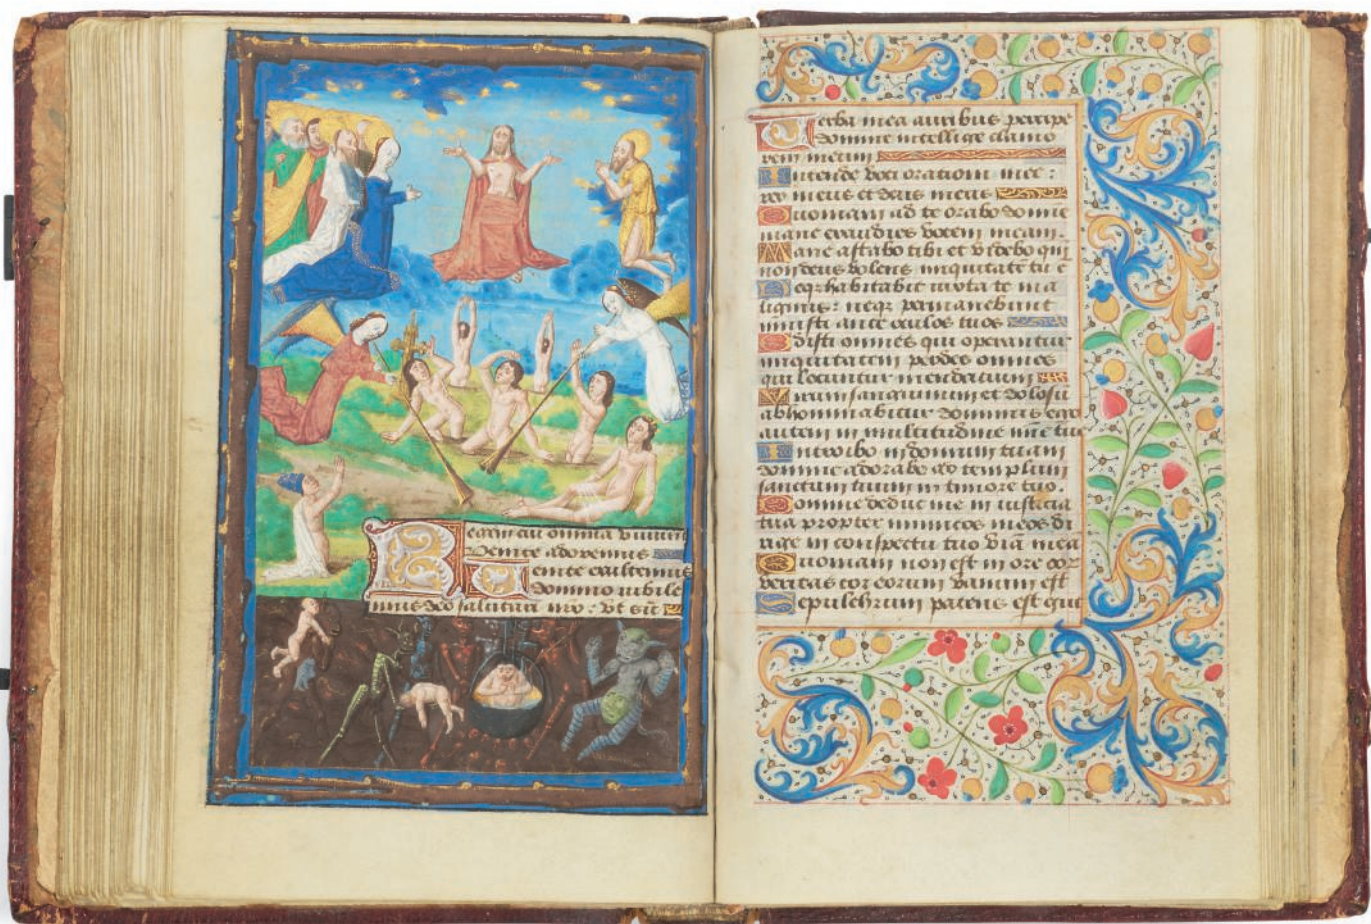 Regem cui omnia viuun
Venite adoremus
Venite exultemus
domino iubile
mus deo salutari nr̄o : Vt sic
Verba mea auribus percipe
domine intellige clamo
rem meum
Intende voci orationis mee :
rex meus et deus meus
Quoniam ad te orabo domine
mane exaudies vocem meam .
Mane astabo tibi et videbo qm̄
non deus volens iniquitatē tu e
Neqz habitabit iuxta te ma
lignus : neqz permanebunt
iniusti ante oculos tuos
Odisti omnes qui operantur
iniquitatem perdes omnes
qui locuntur mendacium
Virum sanguinum et dolosū
abhominabitur dominus ego
autem in multitudine mīe tue
Introibo in domum tuam
domine adorabo ad templum
sanctum tuum in timore tuo .
Domine deduc me in iusticia
tua propter inimicos meos di
rige in conspectu tuo viā meā
Quoniam non est in ore eor
veritas cor eorum vanum est
Sepulchrum patens est gut